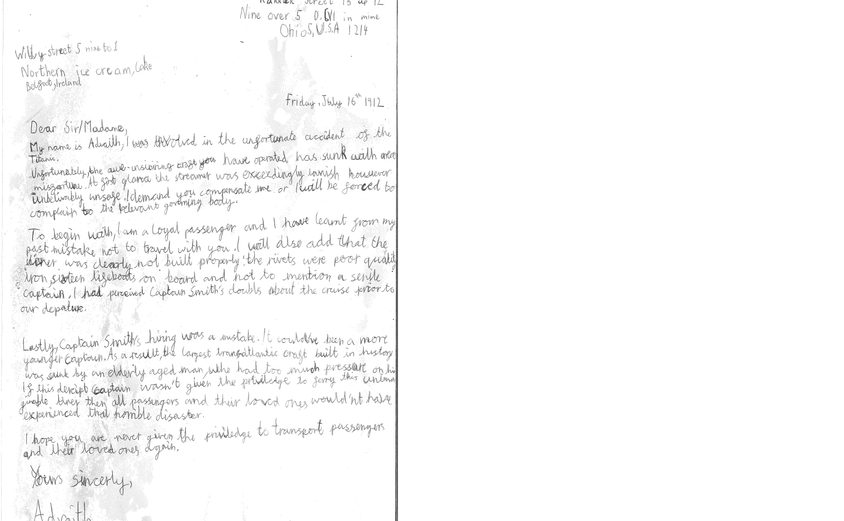 Street 15 12
Nine over 5 in mine
Ohio 5, U.S.A 1214
Willy street 5 nine to 1
Northern ice cream, lake
Belfast, Ireland
Friday, July 16th 1912
Dear Sir/Madame,
My name is Advaith, I was involved in the unfortunate accident of the
Titanic.
Unfortunately, the awe-inspiring craft you have operated has sunk with
misfortune. At first glance the streamer was exceedingly lavish however
unbelivably unsafe. I demand you compensate me or I will be forced to
complain to the relevant governing body.
To begin with, I am a loyal passenger and I have learnt from my
past mistake not to travel with you. I will also add that the
liner was clearly not built properly the rivets were poor quality
iron sixteen lifeboats on board and not to mention a senile
captain, I had perceived Captain Smith's doubts about the cruise prior to
our depature.
Lastly, Captain Smith's hiring was a mistake. It could've been a more
younger captain. As a result, the largest transatlantic craft built in history
was sunk by an elderly aged man, who had too much pressure on his
If this decript captain wasn't given the priviledge to ferry this
liner then all passengers and their loved ones wouldn't have
experienced that horrible disaster.
I hope you are never given the priviledge to transport passengers
and their loved ones again.
Yours sincerly,
Advaith